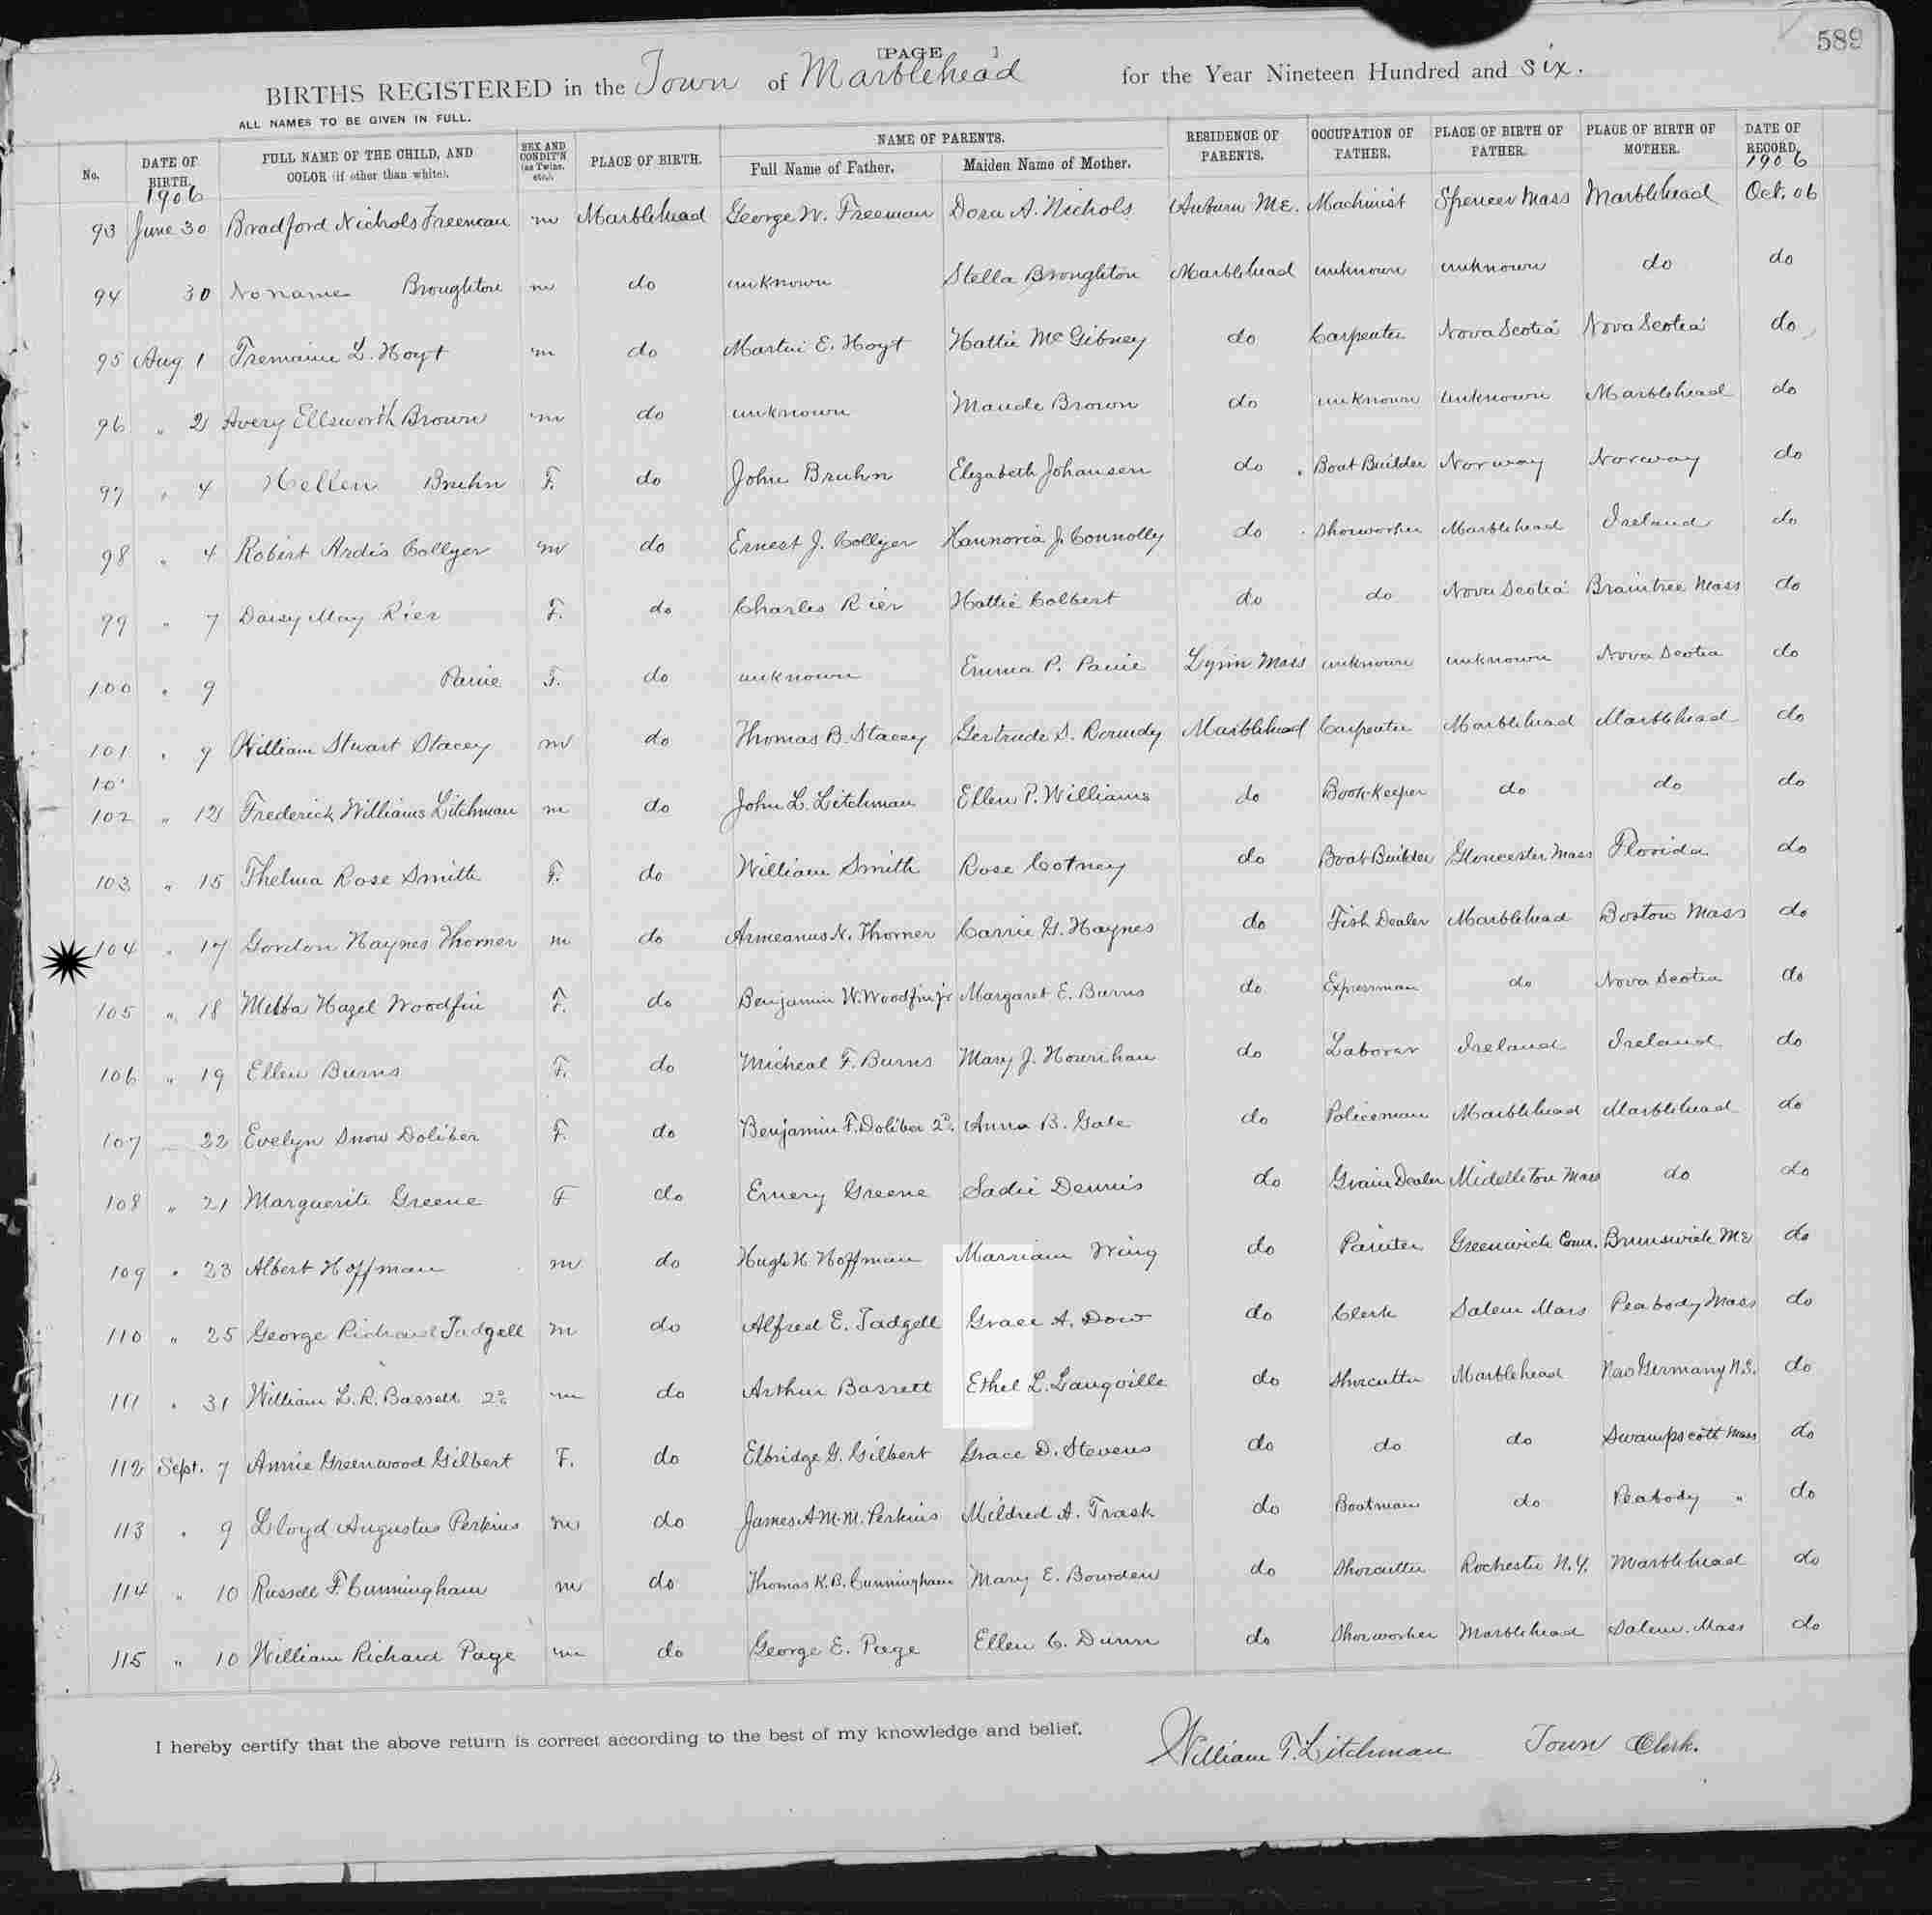 589
[PAGE ]
BIRTHS REGISTERED in the Town of Marblehead for the Year Nineteen Hundred and Six.
ALL NAMES TO BE GIVEN IN FULL.
No. DATE OF BIRTH. FULL NAME OF THE CHILD, AND COLOR (if other than white). SEX AND CONDIT'N (as Twins, etc.) PLACE OF BIRTH. NAME OF PARENTS. Full Name of Father. Maiden Name of Mother. RESIDENCE OF PARENTS. OCCUPATION OF FATHER. PLACE OF BIRTH OF FATHER. PLACE OF BIRTH OF MOTHER. DATE OF RECORD.
1906 1906
93 June 30 Bradford Nichols Freeman m Marblehead George W. Freeman Dora A. Nichols Auburn ME. Machinist Spencer Mass Marblehead Oct. 06
94 30 No name Broughton m do unknown Stella Broughton Marblehead unknown unknown do do
95 Aug 1 Tremaine L. Hoyt m do Martin E. Hoyt Hattie McGibney do Carpenter Nova Scotia Nova Scotia do
96 " 2 Avery Ellsworth Brown m do unknown Maude Brown do unknown unknown Marblehead do
97 " 4 Hellen Bruhn F. do John Bruhn Elizabeth Johansen do Boat Builder Norway Norway do
98 " 4 Robert Ardis Collyer m do Ernest J. Collyer Hannoria J. Connolly do Shoeworker Marblehead Ireland do
99 " 7 Daisy May Rier F. do Charles Rier Hattie Colbert do do Nova Scotia Braintree Mass do
100 " 9 Paine F. do unknown Emma P. Paine Lynn Mass unknown unknown Nova Scotia do
101 " 9 William Stuart Stacey m do Thomas B. Stacey Gertrude S. Roundy Marblehead Carpenter Marblehead Marblehead do
10
102 " 12 Frederick Williams Litchman m do John L. Litchman Ellen P. Williams do Book-Keeper do do do
103 " 15 Thelma Rose Smith F. do William Smith Rose Cotney do Boat Builder Gloucester Mass Florida do
104 " 17 Gordon Haynes Thorner m do Armeanus N. Thorner Carrie G. Haynes do Fish Dealer Marblehead Boston Mass do
105 " 18 Melba Hazel Woodfin F. do Benjamin W. Woodfin jr Margaret E. Burns do Expressman do Nova Scotia do
106 " 19 Ellen Burns F. do Micheal F. Burns Mary J. Hourihan do Laborer Ireland Ireland do
107 22 Evelyn Snow Doliber F. do Benjamin F. Doliber 2d. Anna B. Gale do Policeman Marblehead Marblehead do
108 " 21 Marguerite Greene F do Emery Greene Sadie Dennis do Grain Dealer Middleton Mass do do
109 " 23 Albert Hoffman m do Hugh H. Hoffman Marriam Wing do Painter Greenwich Conn. Brunswick ME do
110 " 25 George Richard Tadgell m do Alfred E. Tadgell Grace A. Dow do Clerk Salem Mass Peabody Mass do
111 " 31 William L. R. Bassett 2d m do Arthur Bassett Ethel L. Langville do Shoecutter Marblehead Nao Germany N.S. do
112 Sept. 7 Annie Greenwood Gilbert F. do Elbridge G. Gilbert Grace D. Stevens do do do Swampscott Mass do
113 " 9 Lloyd Augustus Perkins m do James A M. M. Perkins Mildred A. Trask do Boatman do Peabody " do
114 " 10 Russell F. Cunningham m do Thomas K. B. Cunningham Mary E. Bowden do Shoecutter Rochester N.Y. Marblehead do
115 " 10 William Richard Page m do George E. Page Ellen C. Dunn do Shoeworker Marblehead Salem Mass do
I hereby certify that the above return is correct according to the best of my knowledge and belief.
William T. Litchman Town Clerk.